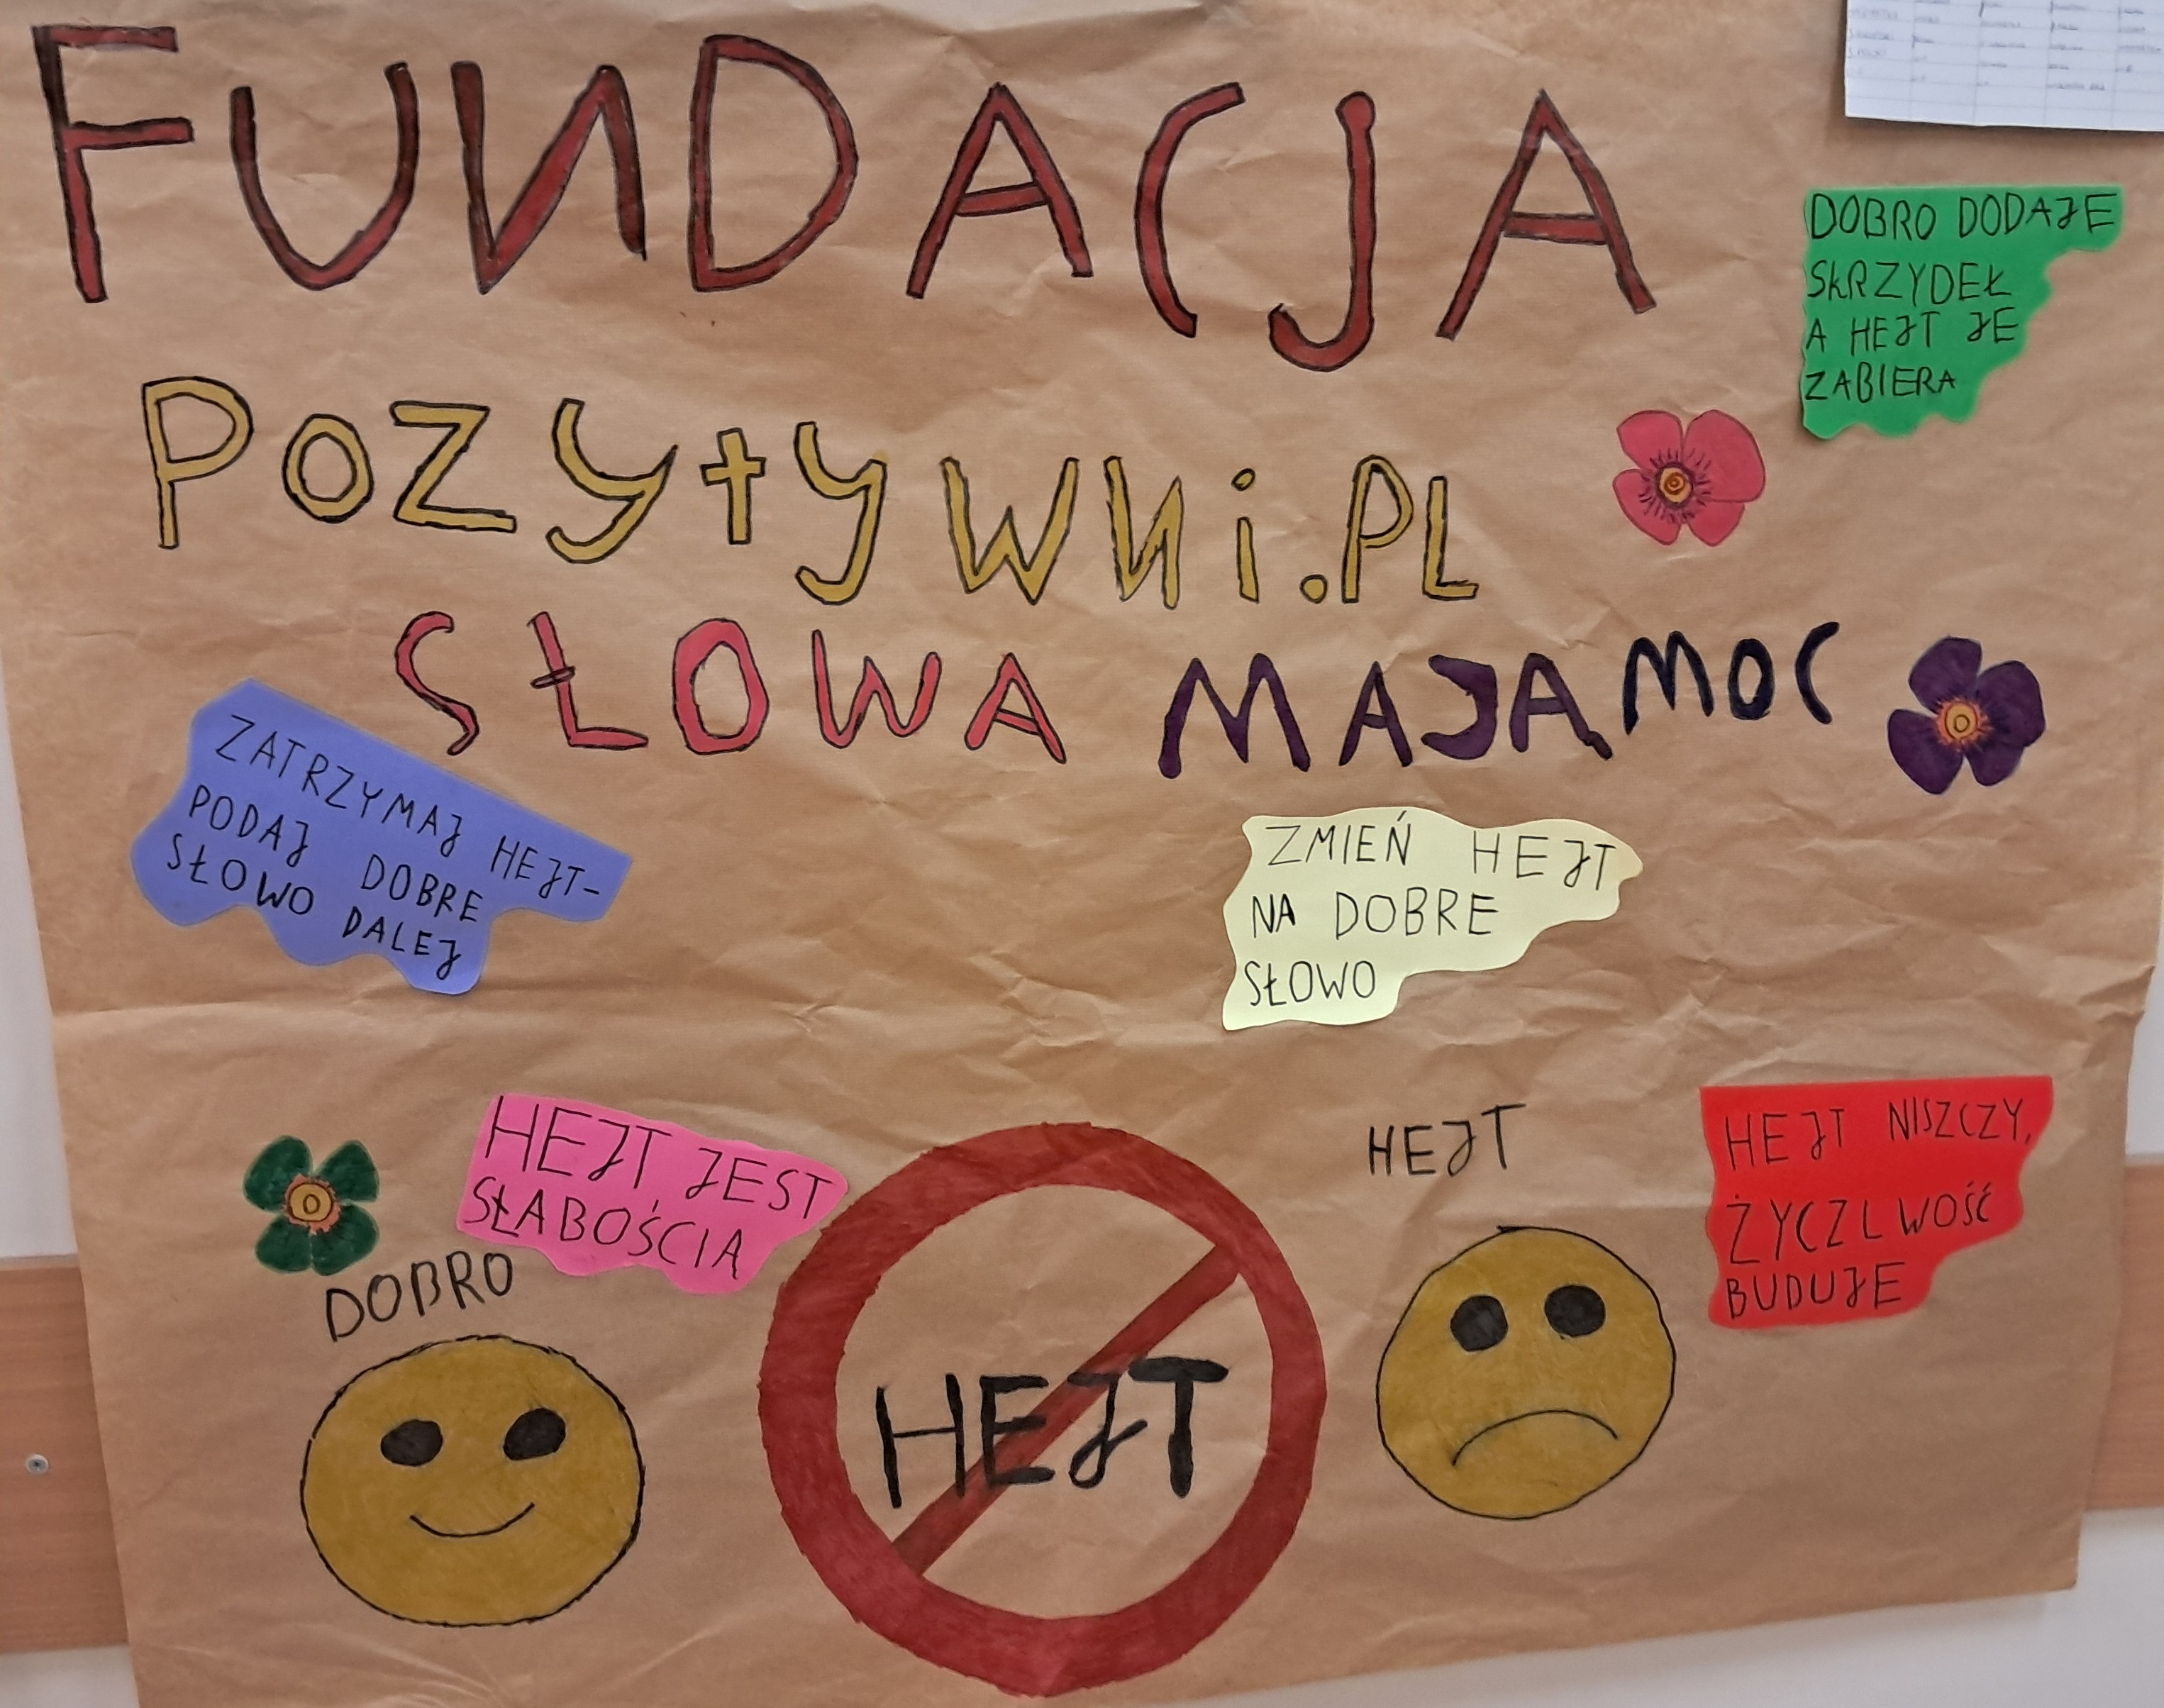 FUNDACJA
POZYtYWNi.PL
SŁOWA MAJĄ MOC
DOBRO DODAJE
SKRZYDEŁ
A HEJT JE
ZABIERA
ZATRZYMAJ HEJT-
PODAJ DOBRE
SŁOWO DALEJ
ZMIEŃ HEJT
NA DOBRE
SŁOWO
HEJT JEST
SŁABOŚCIĄ
DOBRO
HEJT
HEJT
HEJT NISZCZY,
ŻYCZLWOŚĆ
BUDUJE